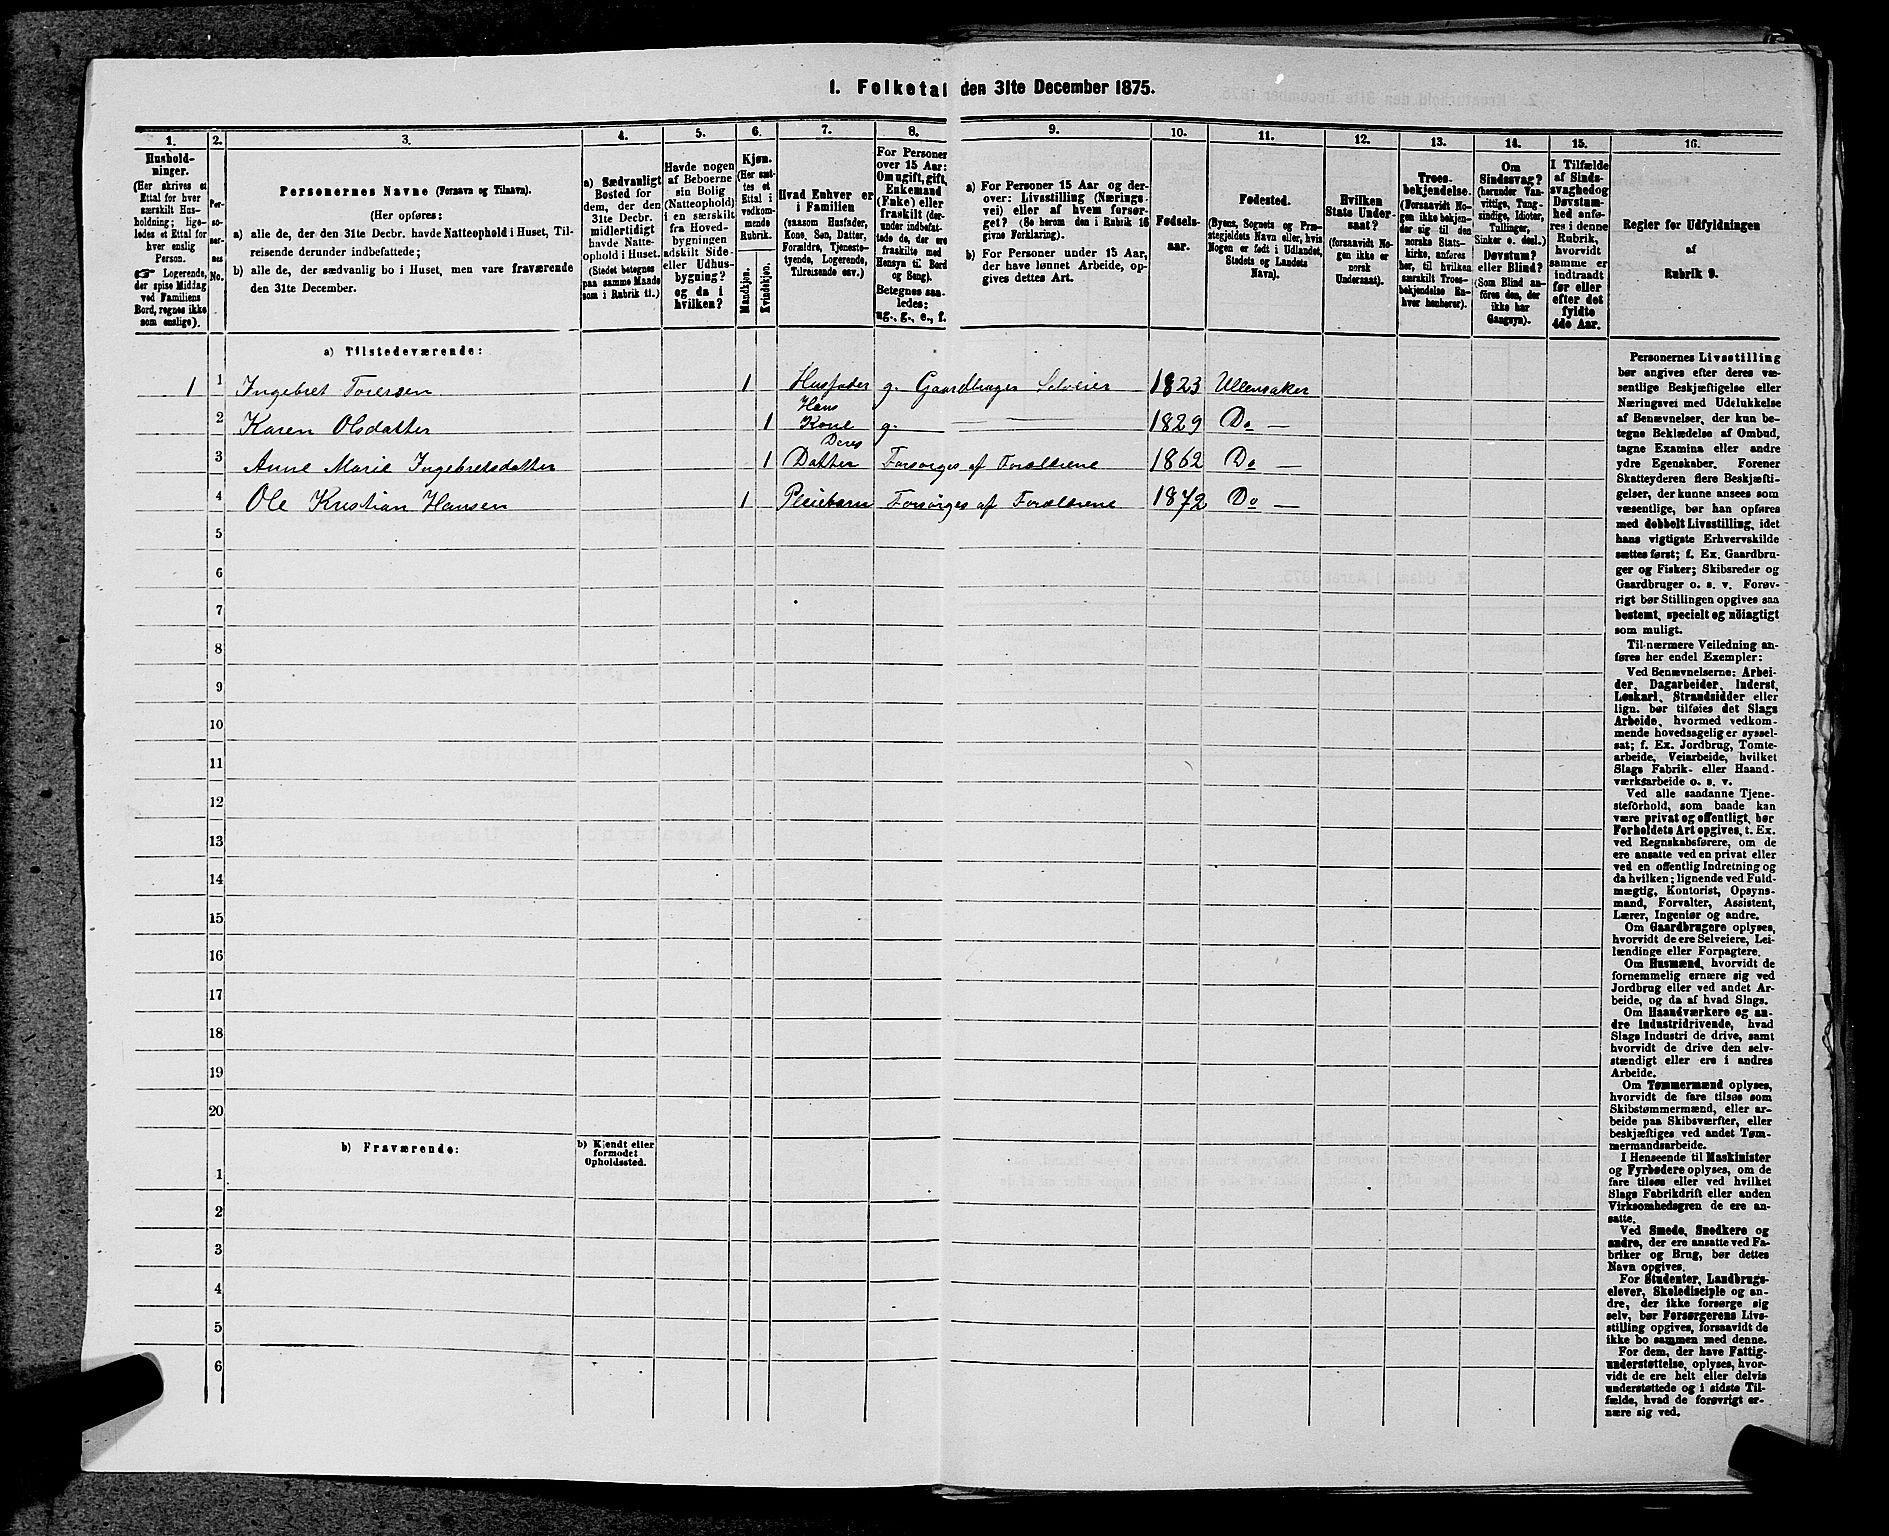 1. Folketal den 31te December 1875.
1.
2.
3.
4.
5.
6.
7.
8.
9.
10.
11.
12.
13.
14.
15.
16.
Hushold-
ninger.
(Her skrives et
Ettal for hver
særskilt Hus-
holdning; lige-
ledes et Ettal for
hver enslig
Person.
☞ Logerende,
der spise Middag
ved Familiens
Bord, regnes ikke
som enslige).
Per-
so-
ner-
nes
No.
Personernes Navne (Fornavn og Tilnavn).
(Her opføres:
a) alle de, der den 31te Decbr. havde Natteophold i Huset, Til-
reisende derunder indbefattede;
b) alle de, der sædvanlig bo i Huset, men vare fraværende
den 31te December.
a) Sædvanligt
Bosted for
dem, der den
31te Decbr.
midlertidigt
havde Natte-
ophold i Huset.
(Stedet betegnes
paa samme Maade
som i Rubrik 11.)
Havde nogen
af Beboerne
sin Bolig
(Natteophold)
i en særskilt
fra Hoved-
bygningen
adskilt Side-
eller Udhus-
bygning?
og da i
hvilken?
Kjøn.
(Her sæt-
tes et
Ettal i
vedkom-
mende
Rubrik.
Mandkjøn.
Kvindekjøn.
Hvad Enhver er
i Familien
(saasom Husfader,
Kone, Søn, Datter,
Forældre, Tjeneste-
tyende, Logerende,
Tilreisende osv.)
For Personer
over 15 Aar:
Om ugift, gift,
Enkemand
(Enke) eller
fraskilt (der-
under indbefat-
tede de, der ere
fraskilte med
Hensyn til Bord
og Seng).
Betegnes saa-
ledes:
ug., g., e., f.
a) For Personer 15 Aar og der-
over: Livsstilling (Nærings-
vei) eller af hvem forsør-
get? (Se herom den i Rubrik 16
givne Forklaring).
b) For Personer under 15 Aar,
der have lønnet Arbeide, op-
gives dettes Art.
Fødsels-
aar.
Fødested.
(Byens, Sognets og Præ-
stegjeldets Navn eller, hvis
Nogen er født i Udlandet,
Stedets og Landets
Navn).
Hvilken
Stats Under-
saat?
(forsaavidt No-
gen ikke er
norsk
Undersaat).
Troes-
bekjendelse.
(Forsaavidt No-
gen ikke bekjen-
der sig til den
norske Stats-
kirke, anføres
her, til hvilken
særskilt Troes-
bekjendelse En-
hver henhører).
Om
Sindssvag?
(herunder Van-
vittige, Tung-
sindige, Idioter,
Tullinger,
Sinker o. desl.)
Døvstum?
eller Blind?
(Som Blind an-
føres den, der
ikke har
Gangsyn).
I Tilfælde
af Sinds-
svaghed og
Døvstum-
hed anfø-
res i denne
Rubrik,
hvorvidt
samme er
indtraadt
før eller
efter det
fyldte
4de Aar.
Regler for Udfyldningen
af
Rubrik 9.
a) Tilstedeværende:
1 1 Ingebret Toresen 1 Husfader g. Gaardbruger Selveier 1823 Ullensaker
Hans
2 Karen Olsdatter 1 Kone g. — — 1829 Do —
Deres
3 Anne Marie Ingebretsdatter 1 Datter Forsørges af Forældrene 1862 Do —
4 Ole Kristian Hansen 1 Pleiebarn Forsørges af Forældrene 1872 Do —
5
6
7
8
9
10
11
12
13
14
15
16
17
18
19
20
b) Fraværende:
b) Kjendt eller
formodet
Opholdssted.
1
2
3
4
5
6
Personernes Livsstilling
bør angives efter deres væ-
sentlige Beskjæftigelse eller
Næringsvei med Udelukkelse
af Benævnelser, der kun be-
tegne Beklædelse af Ombud,
tagne Examina eller andre
ydre Egenskaber. Forener
Skatteyderen flere Beskjæfti-
gelser, der kunne ansees som
væsentlige, bør han opføres
med dobbelt Livsstilling, idet
hans vigtigste Erhvervskilde
sættes først; f. Ex. Gaardbru-
ger og Fisker; Skibsreder og
Gaardbruger o. s. v. Forøv-
rigt bør Stillingen opgives saa
bestemt, specielt og nöiagtigt
som muligt.
Til nærmere Veiledning an-
føres her endel Exempler:
Ved Benævnelserne: Arbei-
der, Dagarbeider, Inderst,
Løskarl, Strandsidder eller
lign. bør tilføies det Slags
Arbeide, hvormed vedkom-
mende hovedsagelig er syssel-
sat; f. Ex. Jordbrug, Tomte-
arbeide, Veiarbeide, hvilket
Slags Fabrik- eller Haand-
værksarbeide o. s. v.
Ved alle saadanne Tjene-
steforhold, som baade kan
være privat og offentligt, bør
Forholdets Art opgives, t. Ex.
ved Regnskabsførere, om de
ere ansatte ved en privat eller
ved en offentlig Indretning og
da hvilken; lignende ved Fuld-
mægtig, Kontorist, Opsyns-
mand, Forvalter, Assistent,
Lærer, Ingeniør og andre.
Om Gaardbrugere oplyses,
hvorvidt de ere Selveiere, Lei-
lændinge eller Forpagtere.
Om Husmænd, hvorvidt de
fornemmelig ernære sig ved
Jordbrug eller ved andet Ar-
beide, og da af hvad Slags.
Om Haandværkere og an-
dre Industridrivende, hvad
Slags Industri de drive, samt
hvorvidt de drive den selv-
stændigt eller ere i andres
Arbeide.
Om Tømmermænd oplyses,
hvorvidt de fare tilsøs som
Skibstømmermænd, eller ar-
beide paa Skibsværfter, eller
beskjæftiges ved andet Tøm-
mermandsarbeide.
I Henseende til Maskinister
og Fyrbødere oplyses, om de
fare tilsøs eller ved hvilket
Slags Fabrikdrift eller anden
Virksomhedsgren de ere an-
satte.
Ved Smede, Snedkere og
andre, der ere ansatte ved Fa-
briker og Brug, bør dettes
Navn opgives.
For Studenter, Landbrugs-
elever, Skoledisciple og an-
dre, der ikke forsørge sig
selv, bør Forsørgerens Livs-
stilling opgives, forsaavidt de
ikke bo sammen med denne.
For dem, der have Fattig-
understøttelse, oplyses, hvor-
vidt de ere helt eller delvis
understøttede og i sidste Til-
fælde, hvad de forøvrigt er-
nære sig ved.